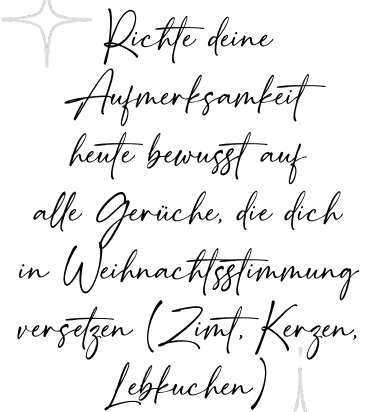 Richte deine
Aufmerksamkeit
heute bewusst auf
alle Gerüche, die dich
in Weihnachtsstimmung
versetzen (Zimt, Kerzen,
Lebkuchen)